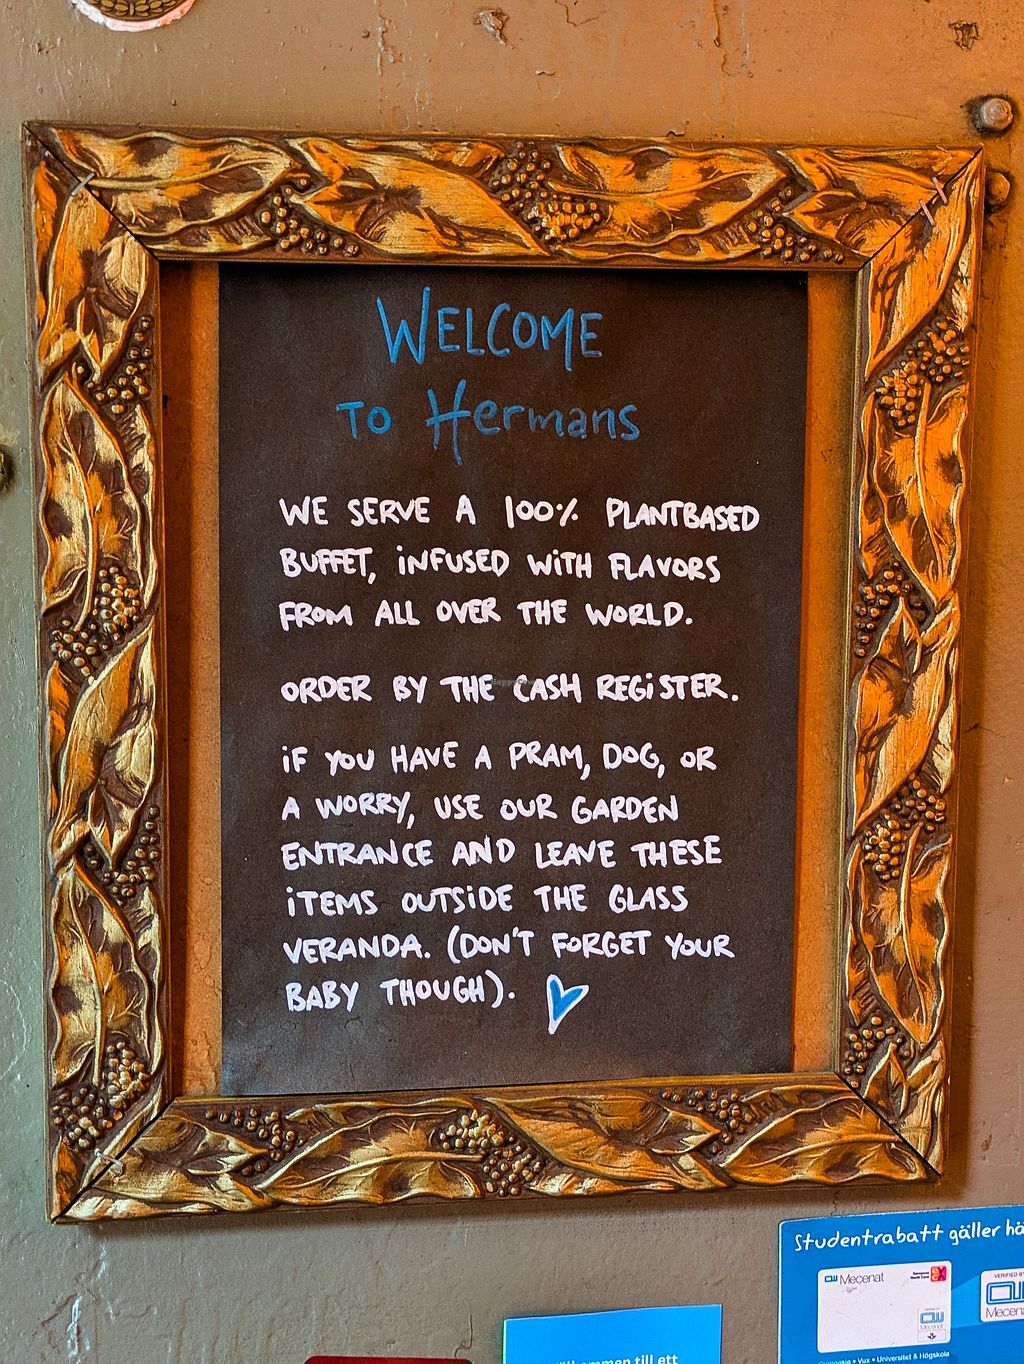 WELCOME
TO Hermans
WE SERVE A 100% PLANTBASED
BUFFET, INFUSED WITH FLAVORS
FROM ALL OVER THE WORLD.
ORDER BY THE CASH REGISTER.
IF YOU HAVE A PRAM, DOG, OR
A WORRY, USE OUR GARDEN
ENTRANCE AND LEAVE THESE
ITEMS OUTSIDE THE GLASS
VERANDA. (DON'T FORGET YOUR
BABY THOUGH).
Studentrabatt gäller
Mecenat
VERIFIED
Mecenat
Mecenat
Vux • Universitet & Högskola
till ett